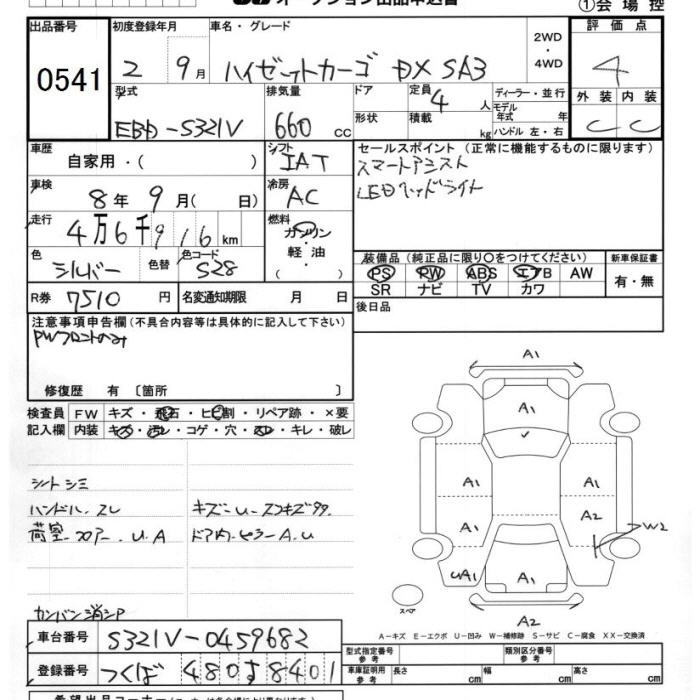 オークション出品申込書
①会場控
出品番号 初度登録年月 車名・グレード 評価点
0541 2 9月 ハイゼットカーゴ DX SA3 2WD・4WD 4
型式 排気量 ドア 定員 4人 ディーラー・並行 外装 内装
EBD-S321V 660 cc 形状 積載 kg モデル年式 年 ハンドル 左・右 C C
車歴 自家用・( ) シフト IAT セールスポイント (正常に機能するものに限ります)
スマートアシスト
車検 8年 9月( 日) 冷房 AC LEDヘッドライト
走行 4万6千916km 燃料 ガソリン・軽油・( )
色 シルバー 色替 色コード S28
装備品 (純正品に限り○をつけてください) 新車保証書
PS PW ABS エアB AW 有・無
SR ナビ TV カワ
R券 7510円 名変通知期限 月 日 後日品
注意事項申告欄(不具合内容等は具体的に記入して下さい)
PWフロントのみ
修復歴 有〔箇所 〕
検査員 FW キズ・飛石・ヒビ割・リペア跡・×要
記入欄 内装 キズ・汚レ・コゲ・穴・スレ・キレ・破レ
シートシミ
ハンドル.スレ キズー U-スコキズ
荷室-フロアー.U.A ドア内-ピラーA.U
カンバン消シP
A1
A1
A1 A1
A1 A2 W2
UA1 A1
スペア
A2
A-キズ E-エクボ U-凹み W-補修跡 S-サビ C-腐食 XX-交換済
車台番号 S321V-0459682
登録番号 つくば 480 す 8401
型式指定番号 参考 類別区分番号 参考
車庫証明用 参考 長さ cm 幅 cm 高さ cm